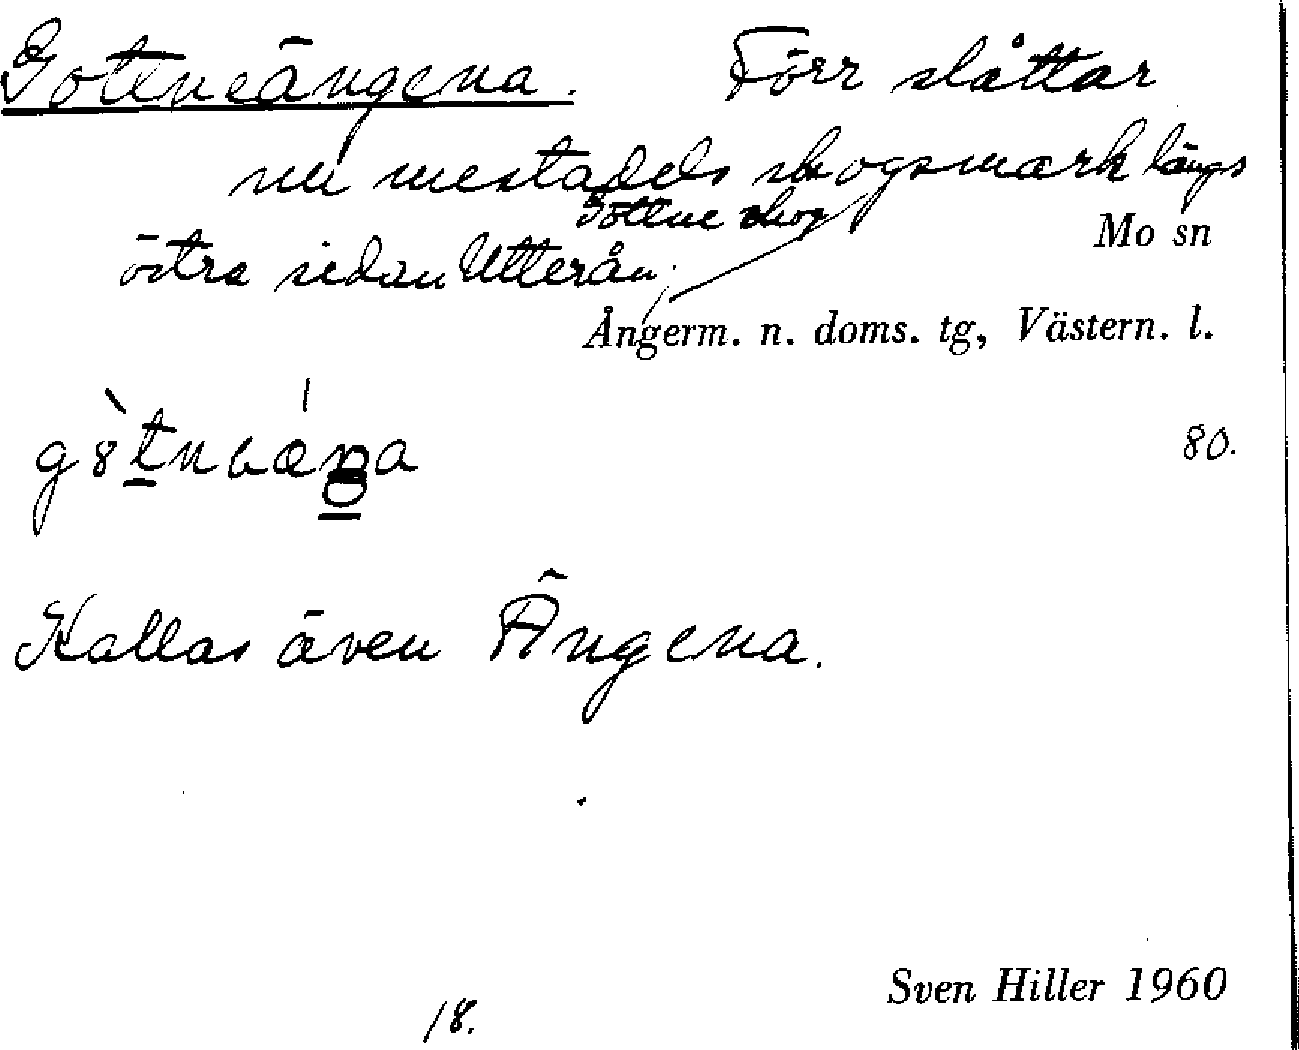 Gottneängena. Förr slåttar
nu mestadels skogsmark längs
Gottne skog
Mo sn
östra sidan Utterån.
Ångerm. n. doms. tg, Västern. l.
80.
Kallas även Ängena.
Sven Hiller 1960
18.